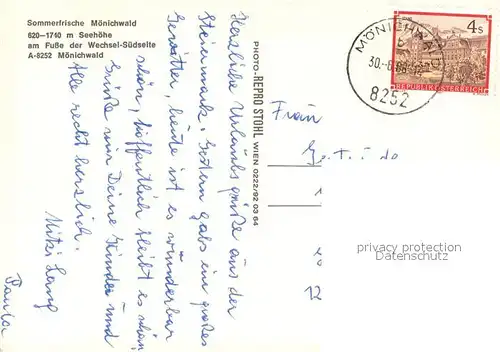 Sommerfrische Mönichwald
620–1740 m Seehöhe
am Fuße der Wechsel-Südseite
A-8252 Mönichwald
Herzliche Urlaubsgrüße aus der
Steiermark. Gestern gab's ein großes
Gewitter, heute ist es wunderbar
schön, hoffentlich bleibt es schön
Grüße mir Deine Kinder und
alle recht herzlich.
Paula
PHOTO-REPRO STOHL WIEN 0222/92 03 64
MÖNICHWALD
8252
4 S
REPUBLIK ÖSTERREICH
Frau
privacy protection
Datenschutz